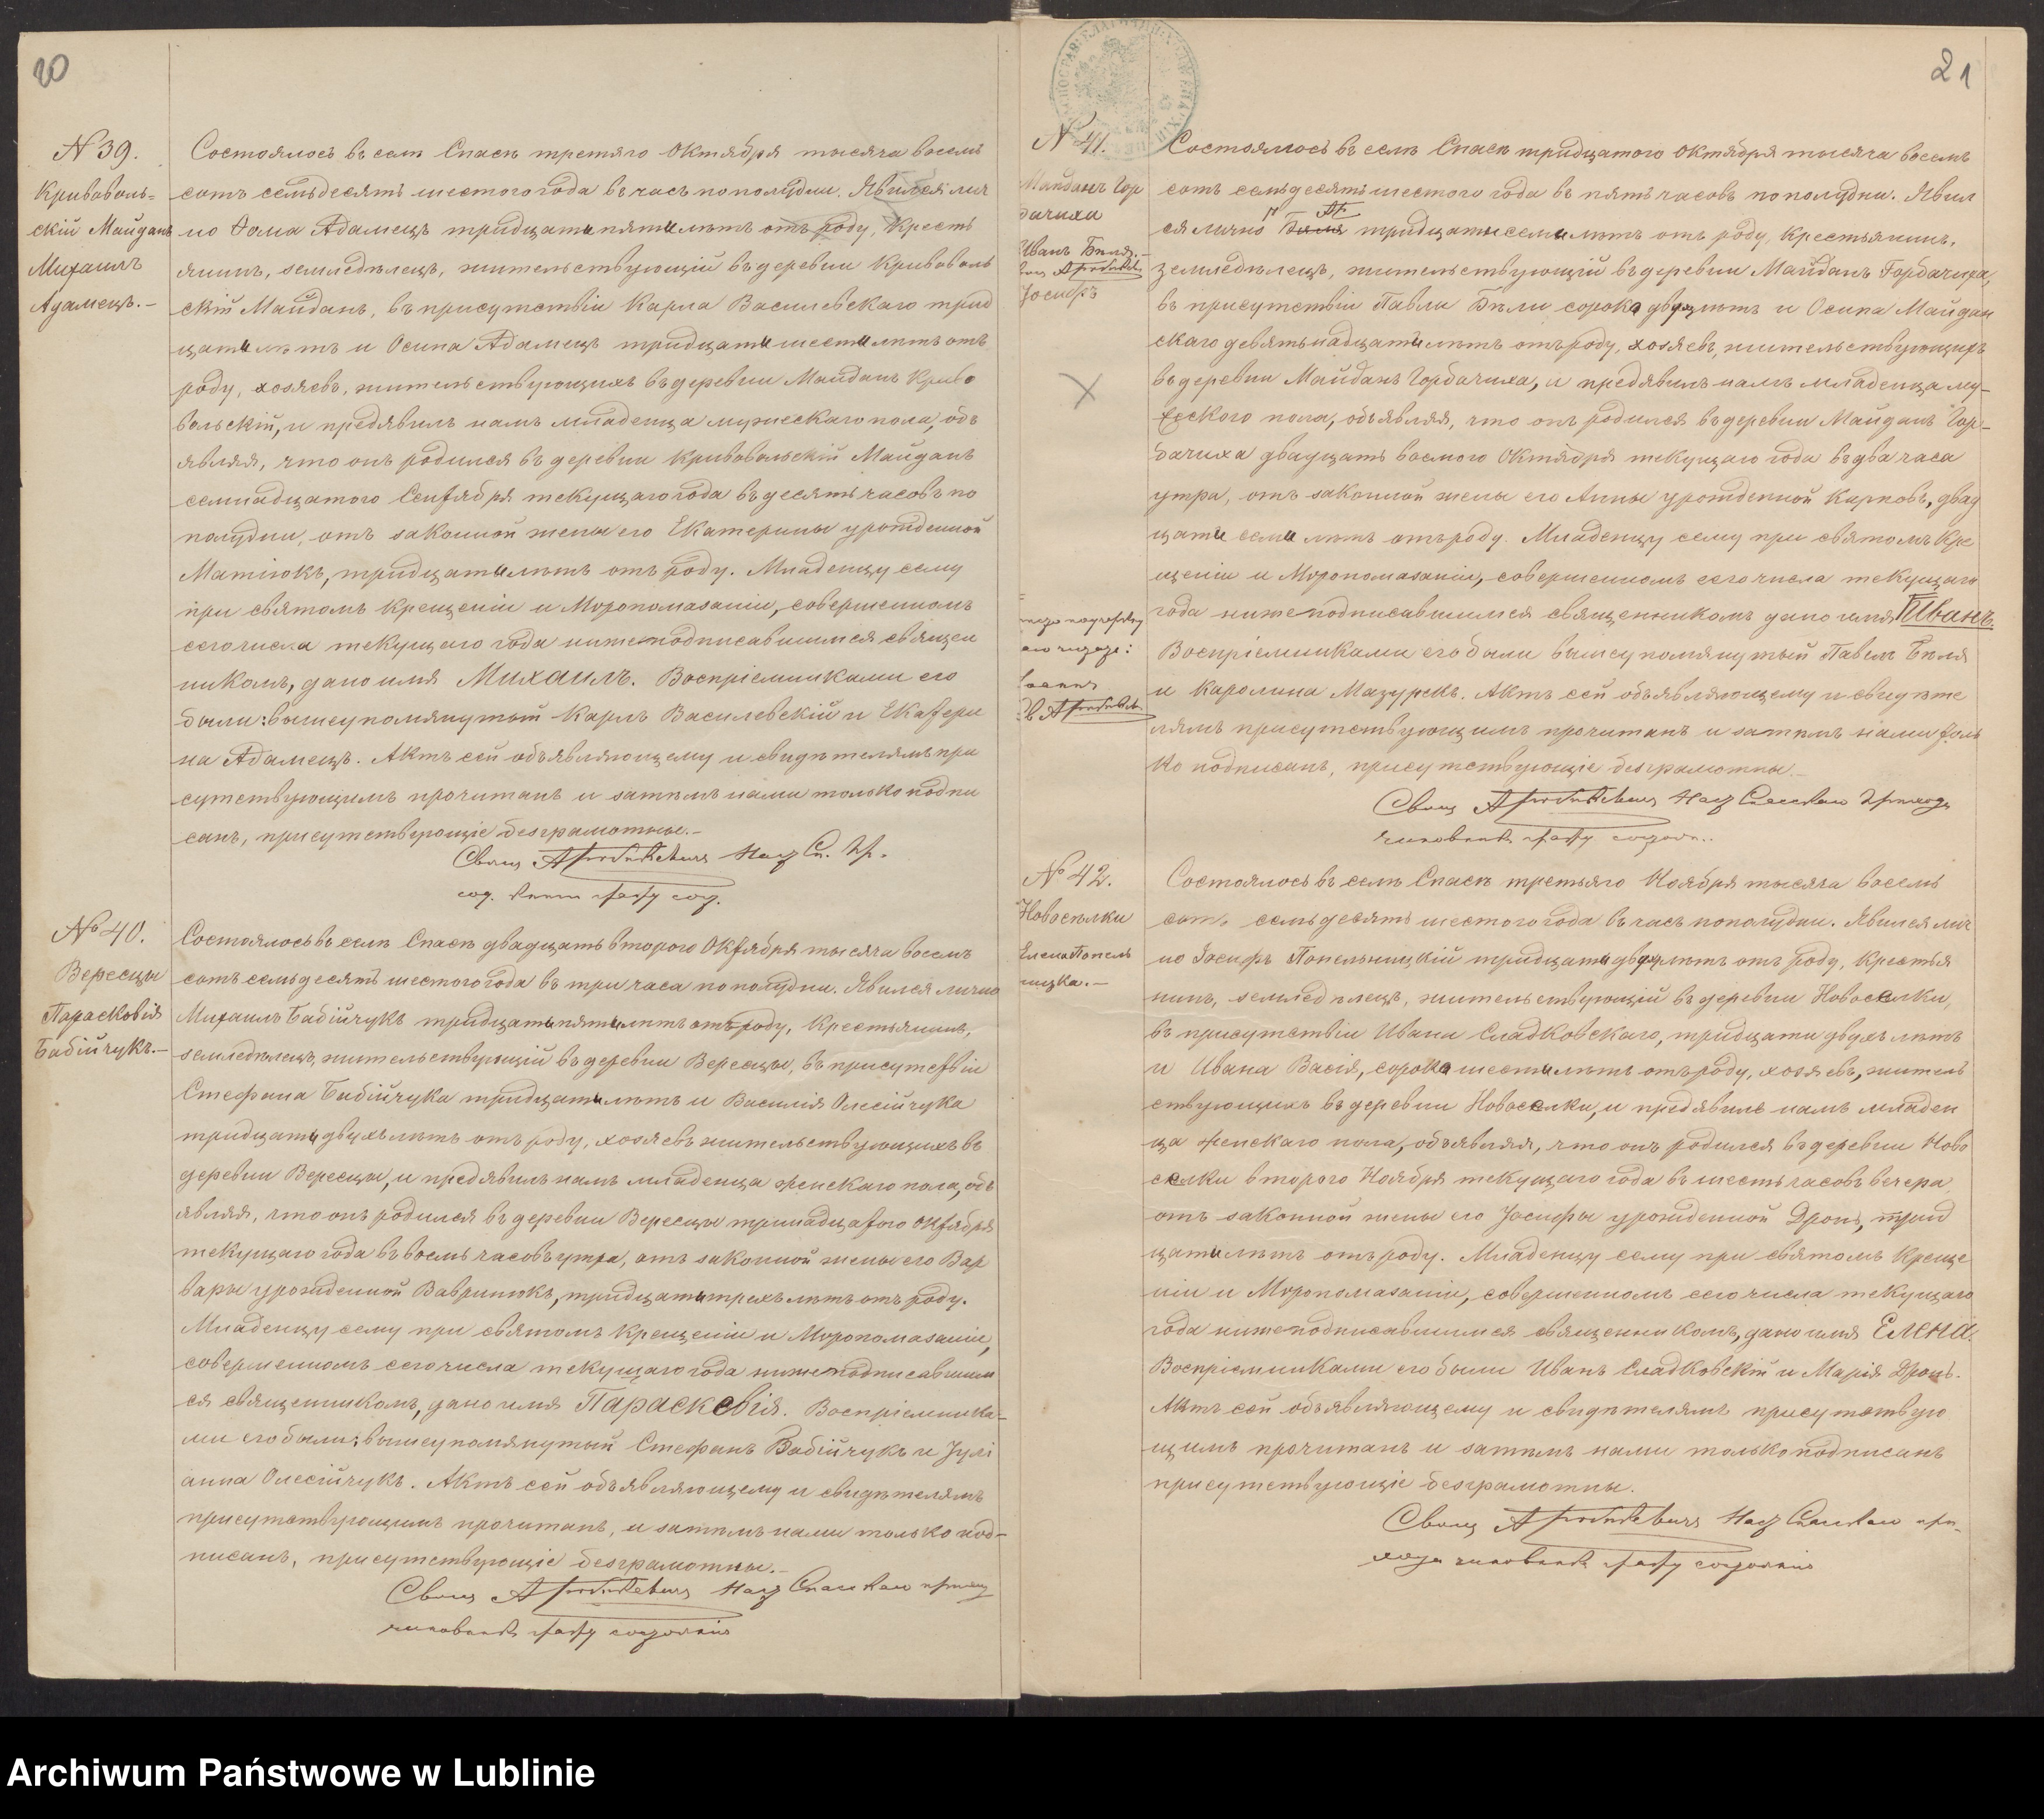 20
№ 39.
Кривоволь=
скій Майданъ
Михаилъ
Адамецъ.–
Состоялось въ селѣ Спасѣ третяго Октября тысяча восемь
сотъ семьдесятъ шестого года въ часъ пополудни. Явился лич
но Фома Адамецъ тридцати пяти лѣтъ отъ роду, кресть
янинъ, земледѣлецъ, жительствующій въ деревни Кривоволь
скій Майданъ, въ присутствіи Карла Василевскаго трид
цати лѣтъ и Осипа Адамецъ тридцати шести лѣтъ отъ
роду, хозяевъ, жительствующихъ въ деревни Майданъ Криво
вольскій, и предявилъ намъ младенца мужескаго пола, объ
являя, что онъ родился въ деревни Кривовольскій Майданъ
семнадцатого Сентября текущаго года въ десять часовъ по
полудни, отъ законной жены его Екатерины урожденной
Матіюкъ, тридцати лѣтъ отъ роду. Младенцу сему
при святомъ крещеніи и Мѵропомазаніи, совершенномъ
сего числа текущаго года нижеподписавшимся священ
никомъ, дано имя Михаилъ. Воспріемниками его
были: вышеупомянутый Карлъ Василевскій и Екатери
на Адамецъ. Актъ сей объявляющему и свидѣтелямъ при
сутствующимъ прочитанъ и затѣмъ нами только подпи
санъ, присутствующіе безграмотны.–
№ 40.
Вересцы
Парасковія
Бабійчукъ.–
Состоялось въ селѣ Спасѣ двадцать второго Октября тысяча восемь
сотъ семьдесятъ шестого года въ три часа пополудни. Явился лично
Михаилъ Бабійчукъ тридцати пяти лѣтъ отъ роду, крестьянинъ,
земледѣлецъ, жительствующій въ деревни Вересцы, въ присутствіи
Стефана Бабійчука тридцати лѣтъ и Василія Олесійчука
тридцати двухъ лѣтъ отъ роду, хозяевъ жительствующихъ въ
деревни Вересцы, и предявилъ намъ младенца женскаго пола, объ
являя, что онъ родился въ деревни Вересцы тринадцатого Октября
текущаго года въ восемь часовъ утра, отъ законной жены его Вар
вары урожденной Вавринюкъ, тридцати трехъ лѣтъ отъ роду.
Младенцу сему при святомъ крещеніи и Мѵропомазаніи,
совершенномъ сего числа текущаго года нижеподписавшим
ся священникомъ, дано имя Параскевія. Воспріемника-
ми его были: вышеупомянутый Стефанъ Бабійчукъ и Јулі
анна Олесійчукъ. Актъ сей объявляющему и свидѣтелямъ
присутствующимъ прочитанъ, и затѣмъ нами только под-
писанъ, присутствующіе безграмотны.–
21
№ 41.
Майданъ Гор
бачиха
Иванъ Биля.–
Јосифъ
Состоялось въ селѣ Спасѣ тридцатого Октября тысяча восемь
сотъ семьдесятъ шестого года въ пять часовъ пополудни. Явил
ся лично Биля тридцати семи лѣтъ отъ роду, крестьянинъ,
земледѣлецъ, жительствующій въ деревни Майданъ Горбачиха,
въ присутствіи Павла Били сорока двухъ лѣтъ и Осипа Майдан
скаго девятьнадцати лѣтъ отъ роду, хозяевъ, жительствующихъ
въ деревни Майданъ Горбачиха, и предявилъ намъ младенца му-
жескаго пола, объявляя, что онъ родился въ деревни Майданъ Гор-
бачиха двадцать восмого Октября текущаго года въ два часа
утра, отъ законной жены его Анны урожденной Карповъ, двад
цати семи лѣтъ отъ роду. Младенцу сему при святомъ Кре
щеніи и Мѵропомазаніи, совершенномъ сего числа текущаго
года нижеподписавшимся священникомъ дано имя Иванъ.
Воспріемниками его были вышеупомянутый Павелъ Биля
и Каролина Мазурекъ. Актъ сей объявляющему и свидѣте
лямъ присутствующимъ прочитанъ и затѣмъ нами толь
ко подписанъ, присутствующіе безграмотны.–
№ 42.
Новосѣлки
Елена Попель
ницка.–
Состоялось въ селѣ Спасѣ третьяго Ноября тысяча восемь
сотъ семьдесятъ шестого года въ часъ пополудни. Явился лич
но Јосифъ Попельницкій тридцати двухъ лѣтъ отъ роду, крестья
нинъ, земледѣлецъ, жительствующій въ деревни Новоселки,
въ присутствіи Ивана Сладковскаго, тридцати двухъ лѣтъ
и Ивана Васія, сорока шести лѣтъ отъ роду, хозяевъ, житель
ствующихъ въ деревни Новоселки, и предявилъ намъ младен
ца женскаго пола, объявляя, что онъ родился въ деревни Ново
селки второго Ноября текущаго года въ шесть часовъ вечера
отъ законной жены его Јосифы урожденной Дронь, трид
цати лѣтъ отъ роду. Младенцу сему при святомъ Креще
ніи и Мѵропомазаніи, совершенномъ сего числа текущаго
года нижеподписавшимся священникомъ, дано имя Елена.
Воспріемниками его были Иванъ Сладковскій и Марія Дронь.
Актъ сей объявляющему и свидѣтелямъ присутствую
щимъ прочитанъ и затѣмъ нами только подписанъ
присутствующіе безграмотны.
Archiwum Państwowe w Lublinie